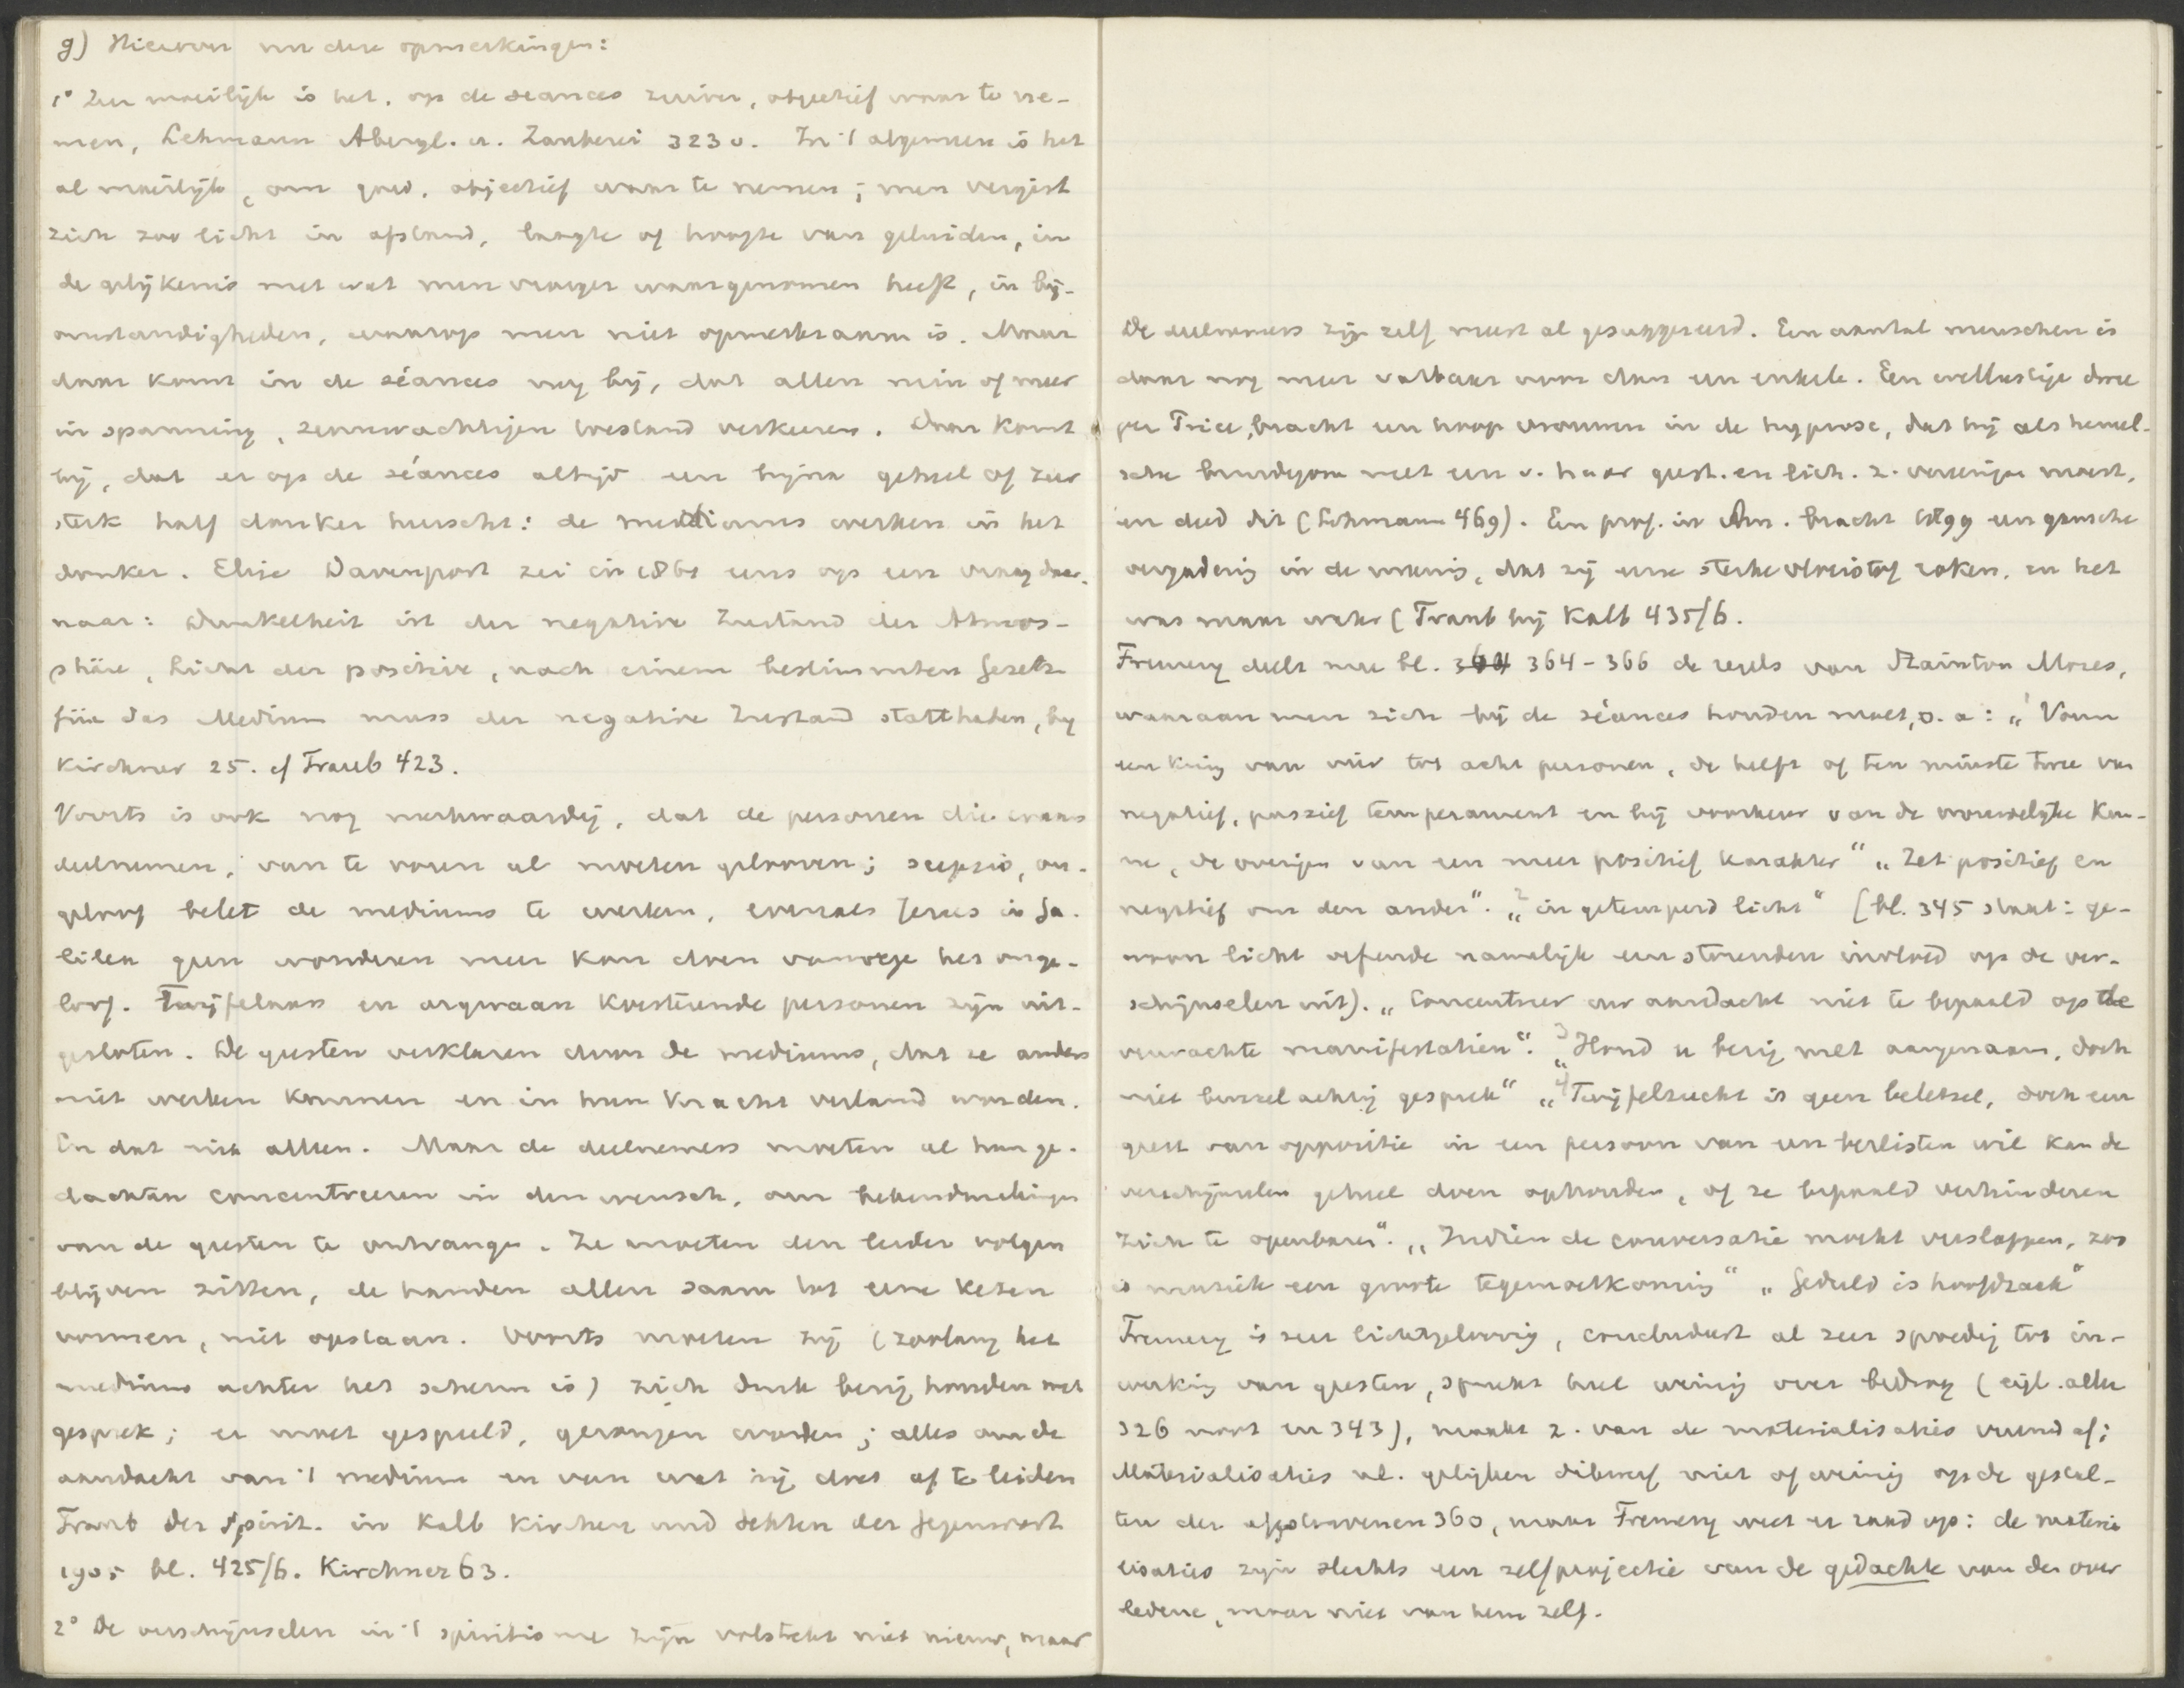 g) Hierover nu deze opmerkingen:
1° Zeer moeilijk is het, op de seances zuiver, objectief waar te ne-
men, Lehmann Abergl. u. Zauberei 323 v. In 't algemeen is het
al moeilijk, om goed, objectief waar te nemen; men vergist
zich zoo licht in afstand, laagte of hoogte van geluiden, in
de gelijkenis met wat men vroeger waargenomen heeft, in bij-
omstandigheden, waarop men niet opmerkzaam is. Maar
daar komt in de séances nog bij, dat allen min of meer
in spanning, zenuwachtigen toestand verkeeren. Daar komt
bij, dat er op de séances altijd een bijna geheel of zeer
sterk half donker heerscht: de mediums werken in het
donker. Elise Davenport zei in 1861 eens op een vraag daar-
naar: Dunkelheit ist der negative Zustand der Atmos-
phäre, Licht der positive, nach einem bestimmten Gesetze
für das Medium muss der negative Zustand statthaben, by
Kirchner 25. cf Traub 423.
Voorts is ook nog merkwaardig, dat de personen die eraan
deelnemen, van te voren al moeten gelooven; scepsis, on-
geloof belet de mediums te werken, evenals Jezus in Ga-
lilea geen wonderen meer kon doen vanwege het onge-
loof. Twijfelaars en argwaan koesterende personen zijn uit-
gesloten. De geesten verklaren door de mediums, dat ze anders
niet werken kunnen en in hun kracht verlamd worden.
En dat niet alleen. Maar de deelnemers moeten al hun ge-
dachten concentreeren in den wensch, om bekendmakingen
van de geesten te ontvangen. Ze moeten den leider volgen
blijven zitten, de handen allen saam tot eene keten
vormen, niet opstaan. Voorts moeten zij (zoolang het
medium achter het scherm is) zich druk bezig houden met
gesprek; er moet gespeeld, gezongen worden; alles om de
aandacht van 't medium en van wat hij doet af te leiden
Traub der Spirit. in Kalb Kirchen und Sekten der Gegenwart
1905 bl. 425/6. Kirchner 63.
2° De verschijnselen in 't spiritisme zijn volstrekt niet nieuw, maar
De deelnemers zijn zelf meest al gesuggereerd. Een aantal menschen is
daar nog meer vatbaar voor dan een enkele. Een wellustige
per Trice, bracht een hoop vrouwen in de hypnose, dat hij als hemel-
sche bruidegom met een v. haar geest. en lich. z. vereenigen moest,
en deed dit (Lehmann 469). Een prof. in Am. bracht 1899 een gansche
vergadering in de meening, dat zij eene sterke vloeistof roken, en het
was maar water (Traub bij Kalb 435/6.
Fremery deelt mee bl. 364-366 de regels van Stainton Moses,
waaraan men zich bij de séances houden moet, o.a: „1 Vorm
een kring van vier tot acht personen, de helft of ten minste twee van
negatief, passief temperament en bij voorkeur van de vrouwelijke kun-
ne, de overigen van een meer positief karakter" „Zet positief en
negatief om den ander". „2 in getemperd licht" (bl. 345 staat: ge-
woon licht oefende namelijk een storenden invloed op de ver-
schijnselen uit). „Concentreer uw aandacht niet te bepaald op de
verwachte manifestatien". „3 Houd u bezig met aangenaam, doch
niet beuzelachtig gesprek" „4 Twijfelzucht is geen beletsel, doch een
geest van oppositie in een persoon van een beslisten wil kan de
verschijnselen geheel doen ophouden, of ze bepaald verhinderen
zich te openbaren". „Indien de conversatie mocht verslappen, zoo
is muziek een groote tegemoetkoming" „Geduld is hoofdzaak"
Fremery is zeer lichtgeloovig, concludeert al zeer spoedig tot in-
werking van geesten, spreekt heel weinig over bedrog (vgl. alleen
326 noot en 343), maakt z. van de materialisaties vreemd af;
Materialisaties nl. gelijken dikwerf niet of weinig op de gestal-
ten der afgestorvenen 360, maar Fremery weet er raad op: de materia
lisaties zijn slechts een zelfprojectie van de gedachte van den over
ledene, maar niet van hem zelf.